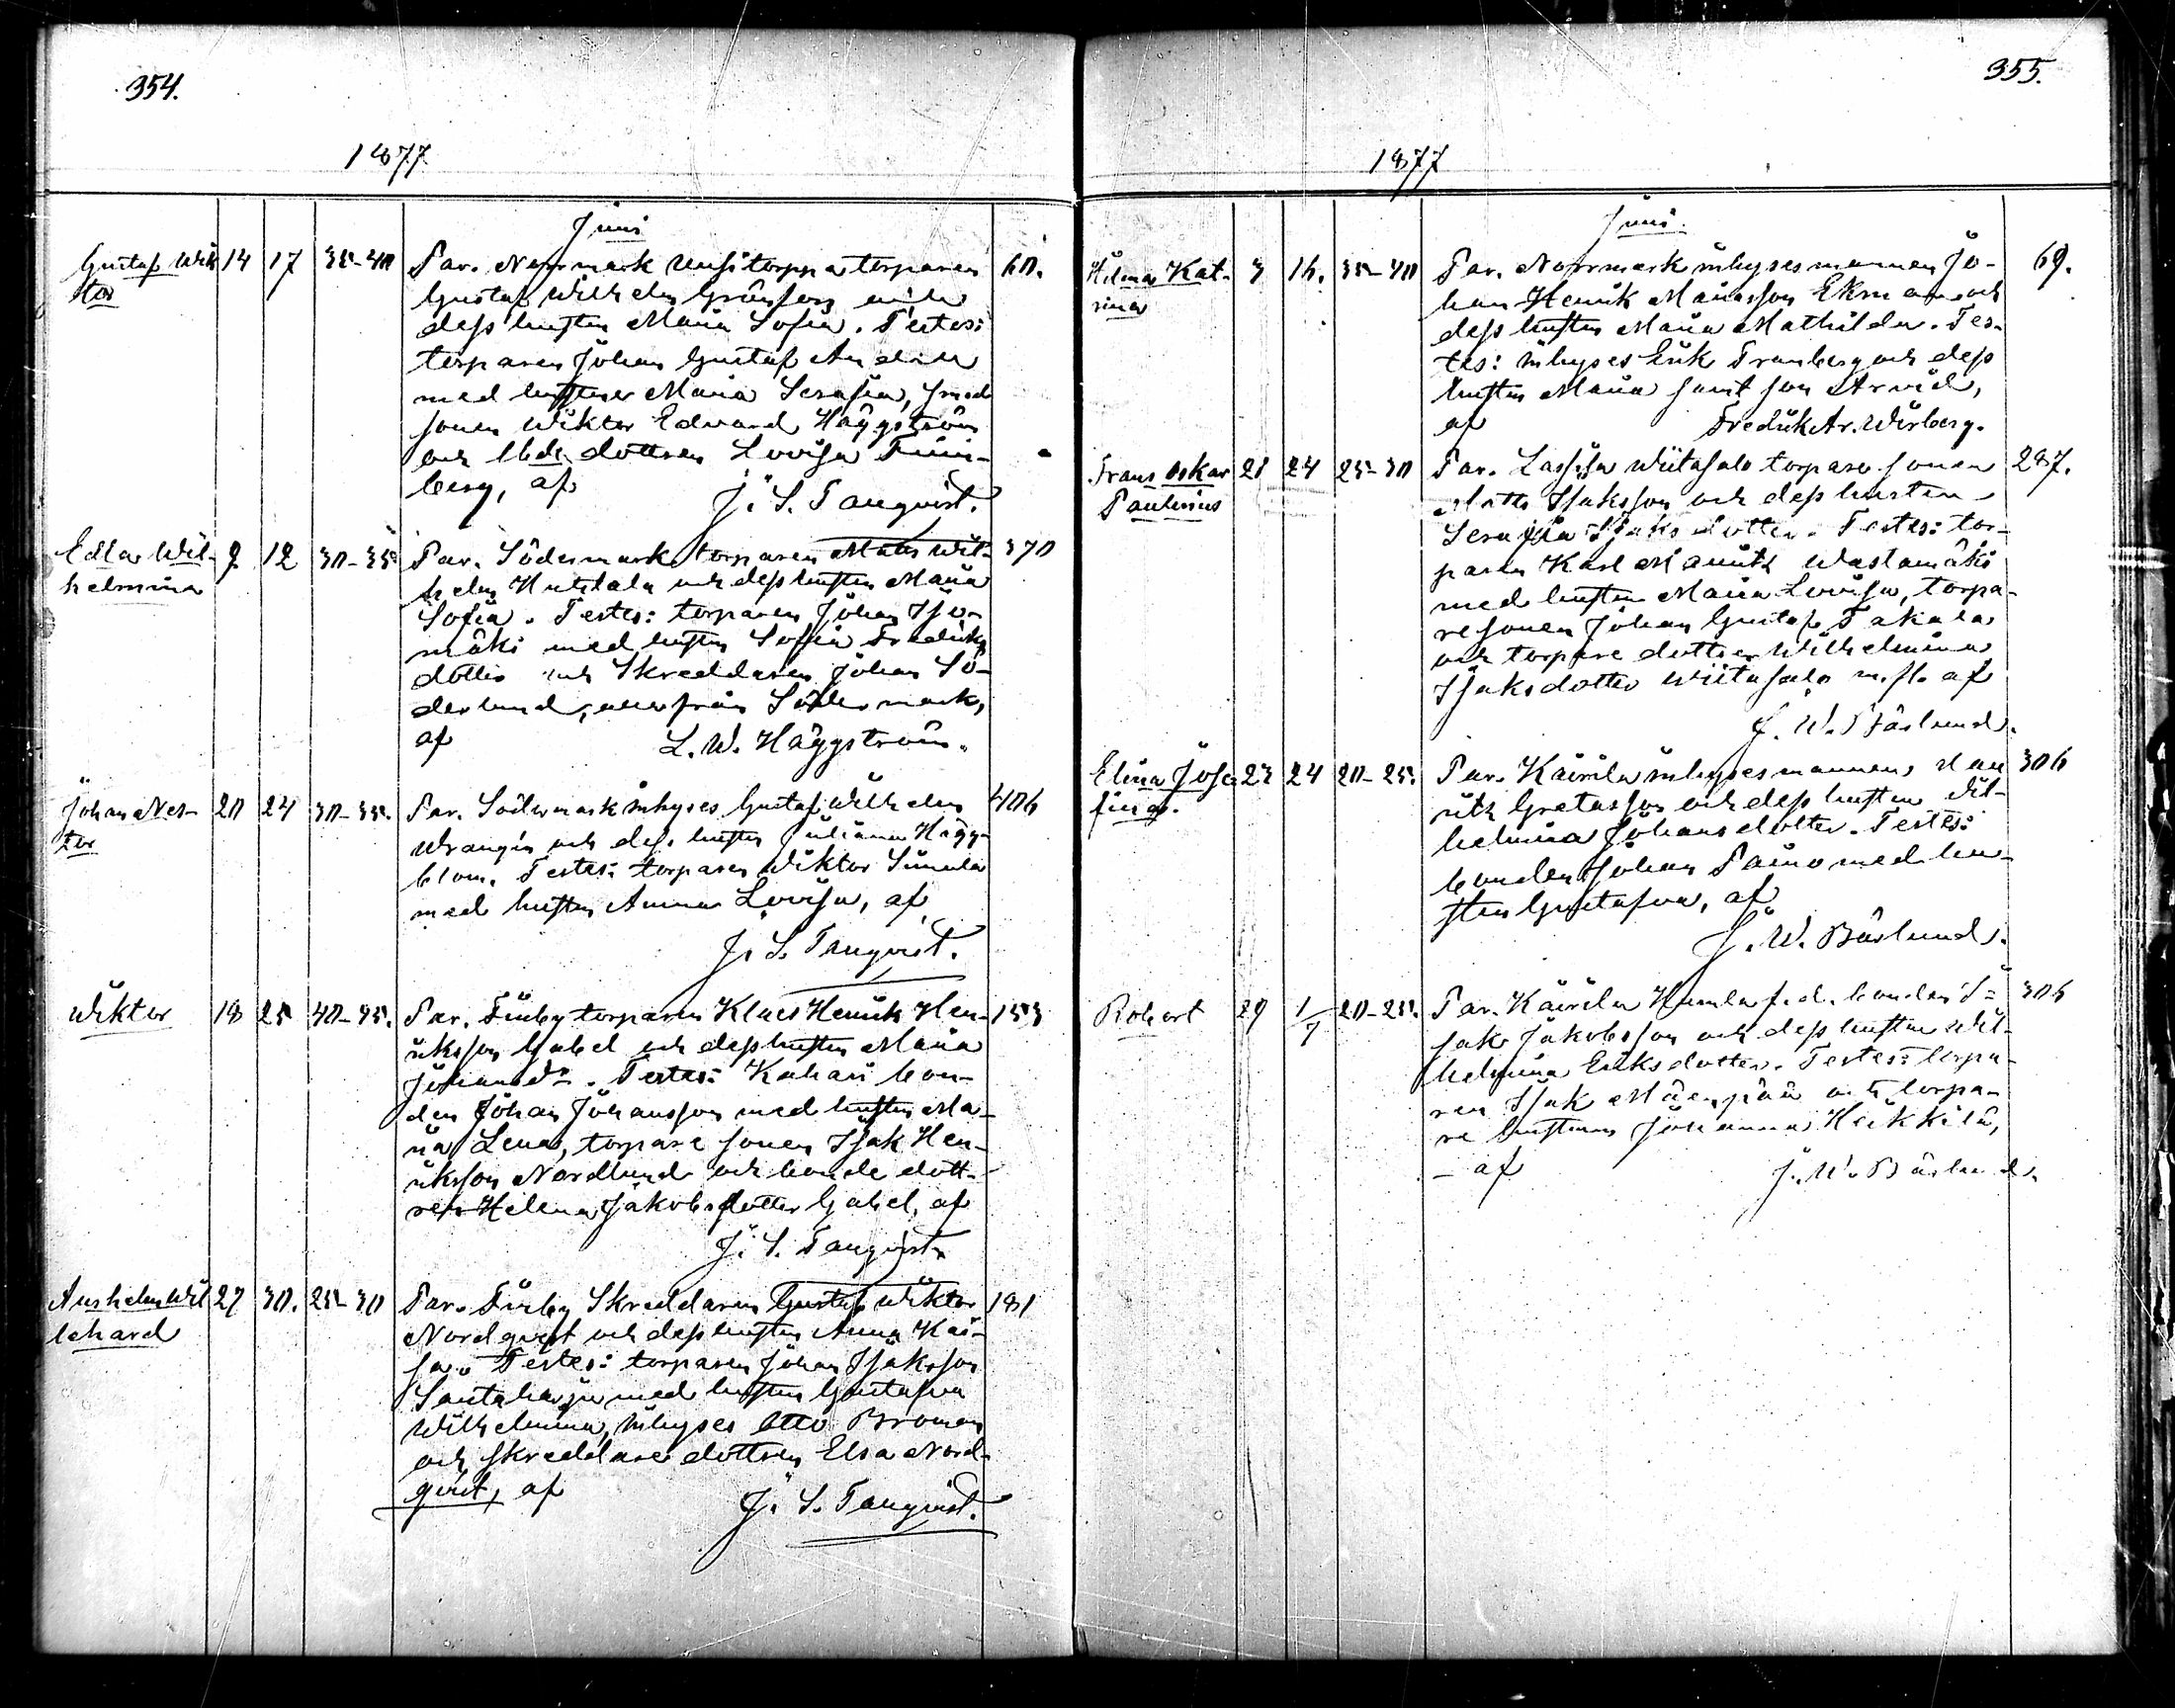 354.
1877
Juni
Gustaf Wik- 14 17 35-40 Par. Norrmark Uusitorppa torparen 60.
tor Gustaf Wilhelm Grönfors och
dess hustru Maria Sofia. Testes:
torparen Johan Gustaf
med hustrun Maria Serafia, smed
sonen Wiktor Edvard Häggström
och dottren Lovisa
berg, af
J. S. Tanqvist.
Edla Wil- 9 12 30-35 Par. Södermark torparen Matts Wil- 370
helmina helm Huhtala och dess hustru Maria
Sofia. Testes: torparen Johan Iso-
mäki med hustru Sofia Fredriks
dotter och Skreddaren Johan Sö-
derlund, alla från Södermark,
af L. W. Häggström.
Johan Nes- 20 24 30-35. Par. Södermark inhyses Gustaf Wilhelm 406
tor Wrangén och dess hustru Juliana Hägg-
blom. Testes: torparen Wiktor Simula
med hustru Anna Lovisa, af
J. S. Tanqvist.
Wiktor 18 25 40-45. Par. Finby torparen Klaes Henrik Hen- 153
riksson Gabel och dess hustru Maria
Johansdr. Testes: Kahari bon-
den Johan Johansson med hustru Ma-
ria Lena, torpare sonen Isak Hen-
riksson Nordlund och bonde dott-
ren Helena Jakobsdotter Gabel, af
J. S. Tanqvist.
Anshelm Wil- 27 30. 25-30 Par. Finby Skreddaren Gustaf Wiktor 181
lehard Nordqvist och dess hustru Anna Kai-
sa. Testes: torparen Johan Isaksson
Santaharju med hustru Gustafva
Wilhelmina, inhyses Otto Broman
och skreddare dottren Elsa Nord-
qvist, af
J. S. Tanqvist.
355.
1877
Juni.
Hilma Kat- 3 16. 35-40 Par. Norrmark inhysesmannen Jo- 69.
rina han Henrik Mariasson Ekman och
dess hustru Maria Mathilda. Tes-
tes: inhyses Erik Tranberg och dess
hustru Maria samt son Arvid,
af Fredrik Ar. Wirberg.
Frans Oskar 21 24 25-30 Par. Lassila Wiitasalo torpare sonen 287.
Paulinus Matts Isaksson och dess hustru
Serafia Isaksdotter. Testes: tor-
paren Karl Mauritz Wastamäki
med hustru Maria Lovisa, torpa-
re sonen Johan Gustaf Takala
och torpare dottren Wilhelmina
Isaksdotter Wiitasalo m.fl. af
J. W. Båslund.
Elina Jose- 23 24 20-25. Par. Kairila inhysesmannen Mau 306
fina. ritz Gretasson och dess hustru Wil-
helmina Johansdotter. Testes:
bonden Johan Paino med hu-
stru Gustafva, af
J. W. Båslund.
Robert 29 1/7 20-25. Par. Kairila Humla f.d. bonden I- 306
sak Jakobsson och dess hustru Wil-
helmina Eriksdotter. Testes: torpa-
ren Isak Mäenpää och torpa-
re hustrun Johanna Heikkilä,
- af J. W. Båslund.